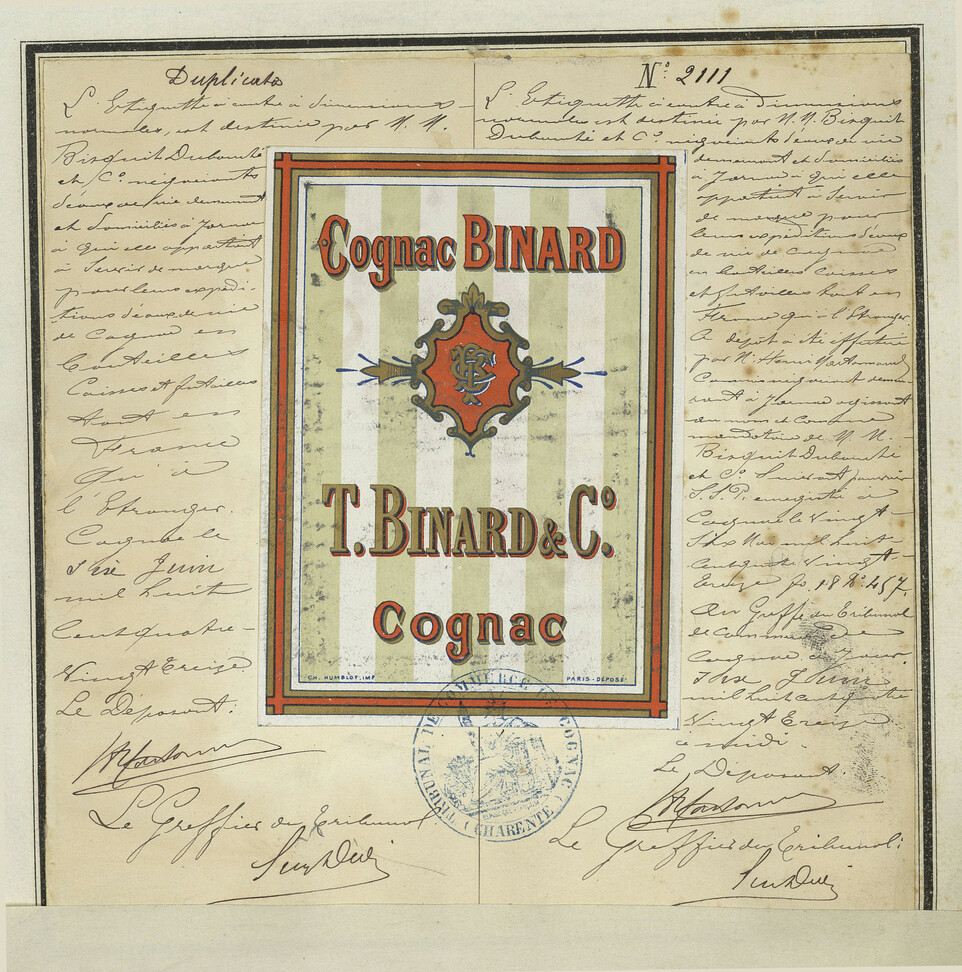 Duplicata
L'Etiquette ci contre à dimensions
normales, est destinée par M. M.
Bisquit Dubouché
et Cº. négociants
d'eaux de vie demeurant
et domiciliés à Jarnac
à qui elle appartient
à Servir de marque
pour leurs expédi-
tions d'eaux de vie
de Cognac en
Bouteilles
Caisses et futailles
tant en
France
qu'à
l'Etranger.
Cognac le
Six Juin
mil huit
Cent quatre-
Vingt Treize
Le Déposant:
Le Greffier du Tribunal
Nº 2111
L'Etiquette ci contre à Dimensions
normales est destinée par M. M. Bisquit
Dubouché et Cº négociants d'eaux de vie
demeurant et domiciliés
à Jarnac à qui elle
appartient à Servir
de marque pour
leurs expéditions d'eaux
de vie de Cognac
en bouteilles Caisses
et futailles tant en
France qu'à l'Etranger
Ce dépôt a été effectué
par M. Henri
négociant demeu-
rant à Jarnac agissant
au nom et comme
mandataire de M. M.
Bisquit Dubouché
et Cº Suivant pouvoir
S.S.P. enregistré à
Cognac le Vingt-
Six Mai mil huit
cent quatre Vingt
Treize fo. 18 Nº 457.
Au Greffe du Tribunal
de Commerce de
Cognac ce Jour.
Six Juin
mil huit cent quatre
Vingt Treize
à midi.
Le Déposant.
Le Greffier du Tribunal:
Cognac BINARD
T. BINARD & Cº.
Cognac
CH. HUMBLOT, IMP.
PARIS - DÉPOSÉ
TRIBUNAL DE COMMERCE DE COGNAC
(CHARENTE)